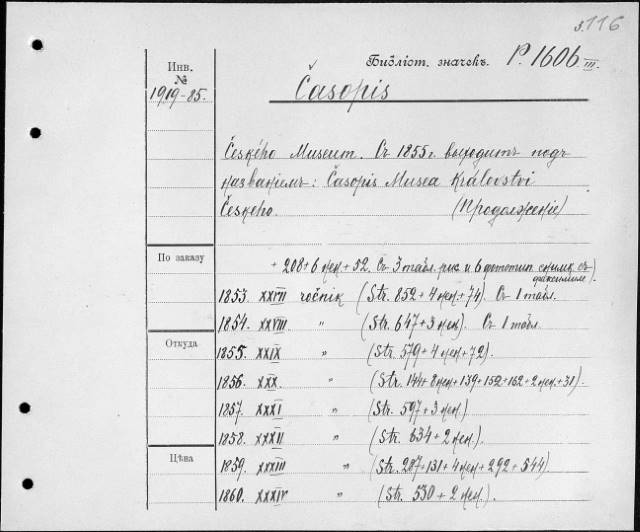 з.116
Инв.
№
1919-85.
Библіот. значекъ. P. 1606 III.
Časopis
Českého Museum. Съ 1855 г. выходитъ подъ
названіемъ: Časopis Musea Království
Českého. (Продолженіе)
По заказу
+ 208 + 6 нен. + 52. Съ 3 табл. рис. и 6 фототип. снимк. съ
факсимиле).
1853. XXVII ročník (Str. 852 + 4 нен. + 74). Съ 1 табл.
1854. XXVIII " (Str. 647 + 3 нен.). Съ 1 табл.
Откуда
1855. XXIX " (Str. 579 + 4 нен. + 72).
1856. XXX. " (Str. 144 + 8 нен. + 139 + 152 + 162 + 2 нен. + 31).
1857. XXXI " (Str. 597 + 3 нен.)
1858. XXXII " (Str. 634 + 2 нен.).
Цѣна
1859. XXXIII " (Str. 287 + 131 + 4 нен. + 292 + 544).
1860. XXXIV " (Str. 530 + 2 нен.).